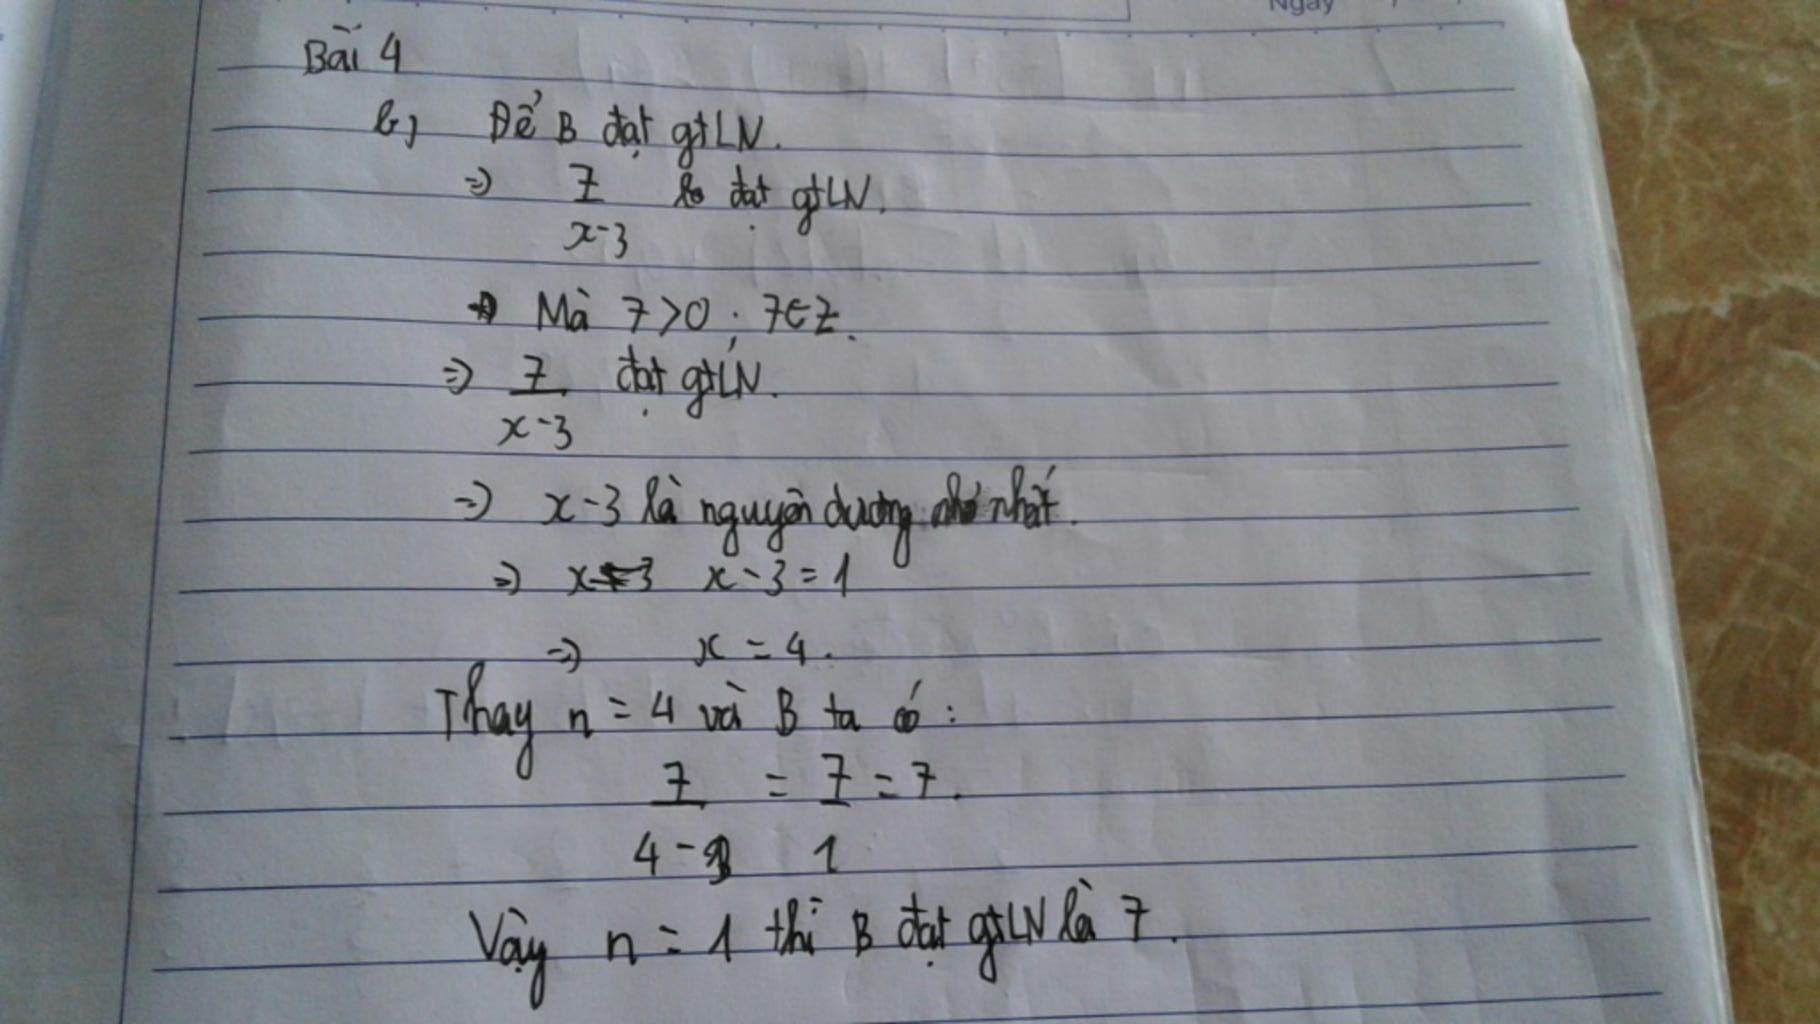 Ngày
Bài 4
b, Để B đạt gtLN.
=> 7/x-3 đạt gtLN.
Mà 7>0; 7∈Z.
=> 7/x-3 đạt gtLN.
=> x-3 là nguyên dương nhỏ nhất.
=> x-3=1
=> x=4.
Thay n=4 và B ta có:
7/4-3 = 7/1 = 7.
Vậy n=1 thì B đạt gtLN là 7.